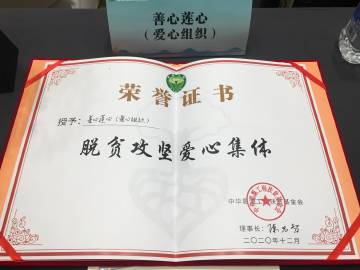 善心莲心
（爱心组织）
荣誉证书
授予：善心莲心（爱心组织）
脱贫攻坚爱心集体
理事长：
二〇二〇年十二月